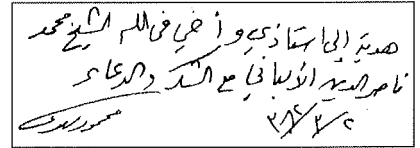 هدية إلى استاذي و أخي في الله الشيخ محمد
ناصر الدين الألباني مع الشكر والدعاء
٢/٣/٣٨٢